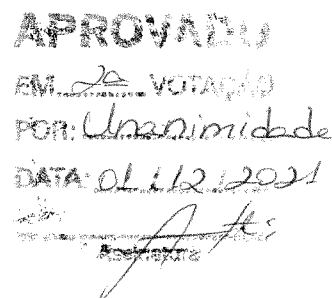 APROVADO
EM 2ª VOTAÇÃO
POR: Unanimidade
DATA: 01/12/2021